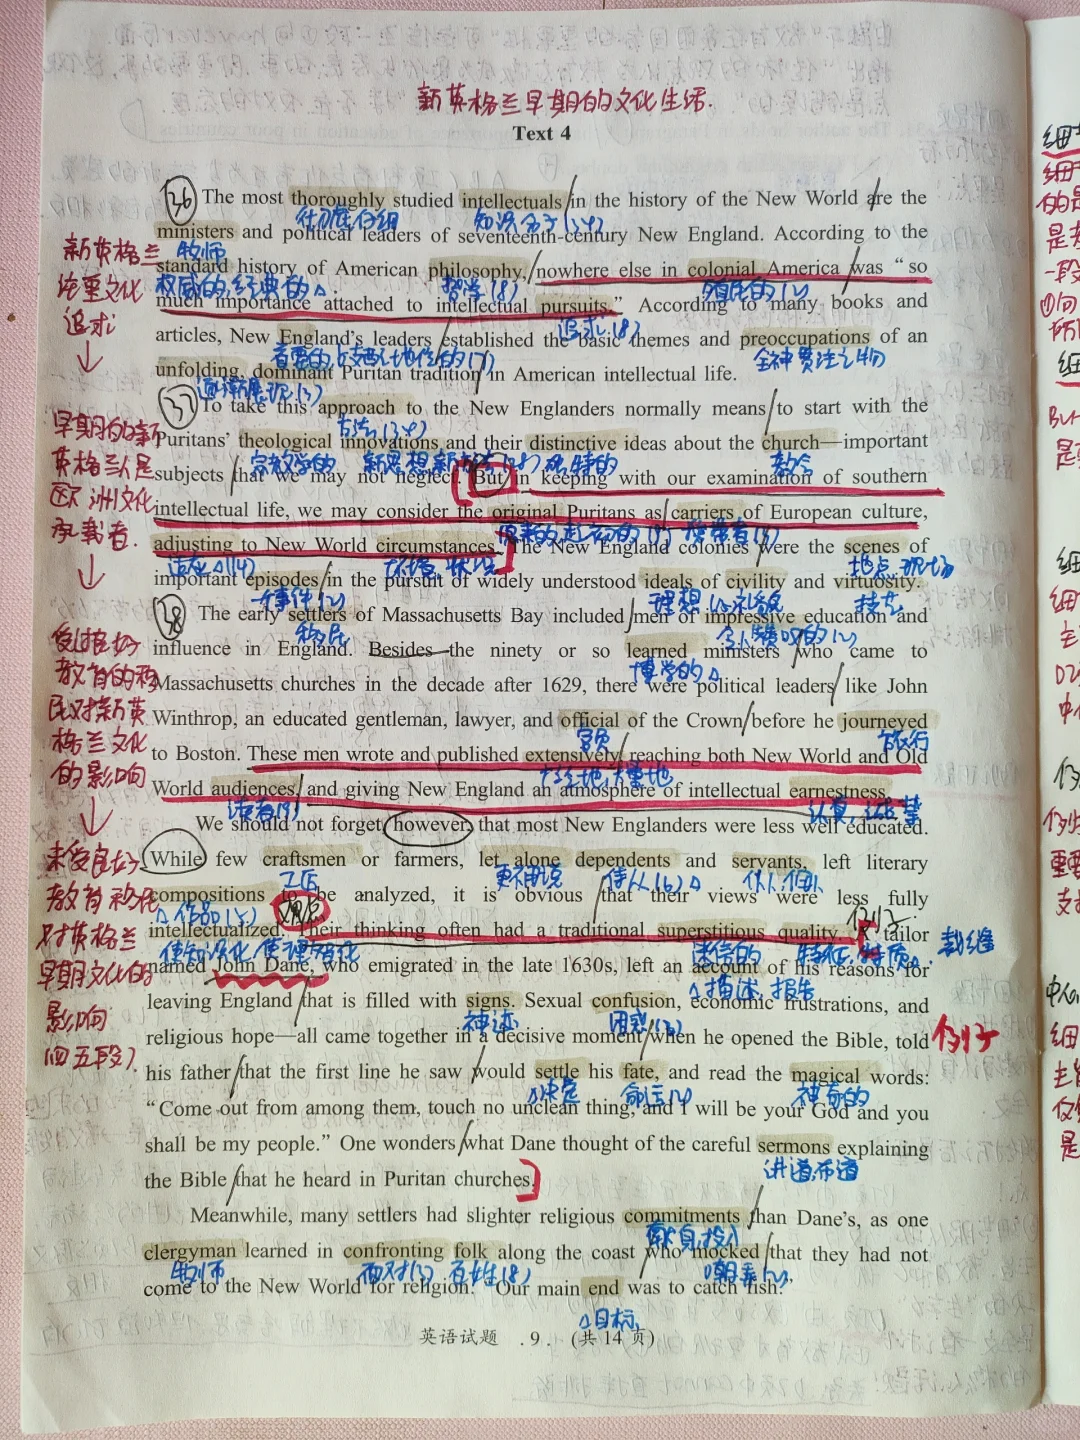 新英格兰早期的文化生活.
Text 4
36 The most thoroughly studied intellectuals in the history of the New World are the
知识分子
ministers and political leaders of seventeenth-century New England. According to the
牧师
standard history of American philosophy, nowhere else in colonial America was “so
权威的,经典的 哲学(8) 殖民的(2)
much importance attached to intellectual pursuits.” According to many books and
追求(8)
articles, New England's leaders established the basic themes and preoccupations of an
全神贯注之物
unfolding, dominant Puritan tradition in American intellectual life.
37 To take this approach to the New Englanders normally means to start with the
Puritans' theological innovations and their distinctive ideas about the church—important
宗教学的 独特的 教会
subjects that we may not neglect. But in keeping with our examination of southern
intellectual life, we may consider the original Puritans as carriers of European culture,
携带者
adjusting to New World circumstances. The New England colonies were the scenes of
适应 环境,状况 地点,现场
important episodes in the pursuit of widely understood ideals of civility and virtuosity.
事件(2) 理想 礼貌 技艺
38 The early settlers of Massachusetts Bay included men of impressive education and
移民 令人赞叹的(2)
influence in England. Besides the ninety or so learned ministers who came to
博学的
Massachusetts churches in the decade after 1629, there were political leaders like John
Winthrop, an educated gentleman, lawyer, and official of the Crown before he journeyed
官员 旅行
to Boston. These men wrote and published extensively, reaching both New World and Old
大量地
World audiences, and giving New England an atmosphere of intellectual earnestness.
读者 认真,诚挚
We should not forget, however, that most New Englanders were less well educated.
While few craftsmen or farmers, let alone dependents and servants, left literary
工匠 更不用说 侍从(6) 仆人,佣人
compositions to be analyzed, it is obvious that their views were less fully
作品 观点 例子
intellectualized. Their thinking often had a traditional superstitious quality. A tailor
使知识化,使理智化 迷信的 特征,特质 裁缝
named John Dane, who emigrated in the late 1630s, left an account of his reasons for
描述,报告
leaving England that is filled with signs. Sexual confusion, economic frustrations, and
神迹 困惑
religious hope—all came together in a decisive moment when he opened the Bible, told
例子
his father that the first line he saw would settle his fate, and read the magical words:
决定 命运 神奇的
“Come out from among them, touch no unclean thing, and I will be your God and you
shall be my people.” One wonders what Dane thought of the careful sermons explaining
讲道,布道
the Bible that he heard in Puritan churches.
Meanwhile, many settlers had slighter religious commitments than Dane's, as one
献身,投入
clergyman learned in confronting folk along the coast who mocked that they had not
牧师 面对 百姓(8) 嘲弄
come to the New World for religion. “Our main end was to catch fish.”
目标
英语试题 .9. (共14页)
新英格兰
注重文化
追求
↓
早期的新
英格兰人是
欧洲文化
承载者.
↓
受过良好
教育的移
民对新英
格兰文化
的影响
↓
未受良好
教育移民
对英格兰
早期文化的
影响
(四五段)